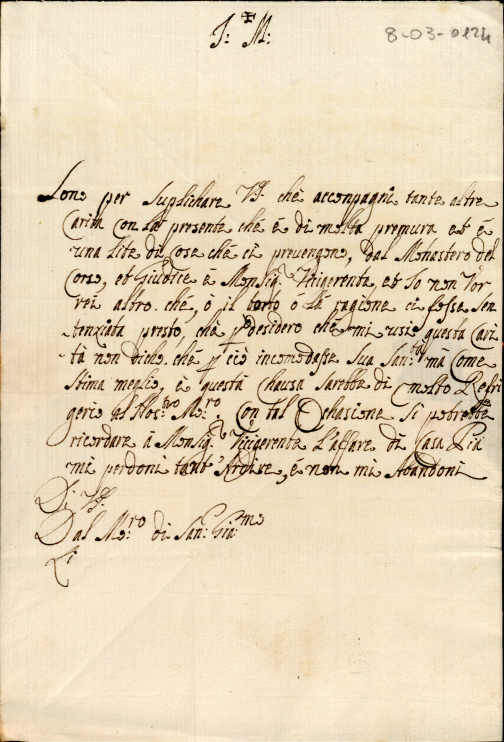 J: M:
8-03-0124
Sono per Suplichare V.S. che accompagni tante altre
Carita con la presente che è di molta premura et è
una Lite di Cose che ci prevengono, dal Monastero del
Corso, et Giudice è Monsig.r Vicigerente, et Io non vor
rei altro che, ò il torto ò la ragione ci fosse Sen
tenziata presto, che p desidero che mi usi questa Cari
tà non dicho che p ciò incomodasse Sua San.tà ma Come
Stima meglio, è questa Chausa Sarebbe di molto Refri
gerio al Nos.tro Mo.ro, Con tal Ochasione Si potrebbe
ricordare à Monsig.r Vicigerente L'affare di Casa Pia
mi perdoni tant' Ardire, è non mi Abandoni
Di V.S.
Dal Mo.ro di San Gia.mo
Li